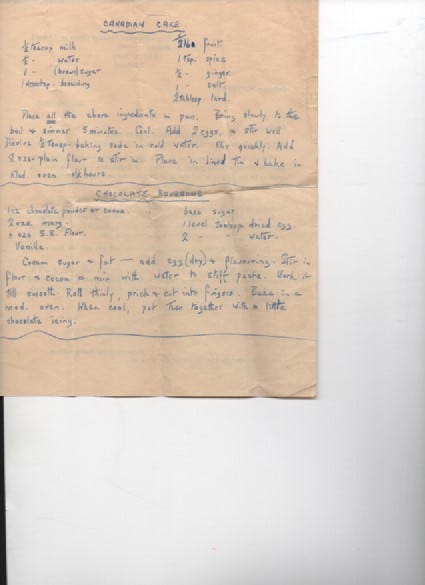 CANADIAN CAKE.
½ teacup milk
½ - water
1 - (brown) sugar
1 dessertsp. browning
½ lb fruit.
1 tsp. spice
½ - ginger
1 - salt
2 tablesp. lard.
Place all the above ingredients in pan. Bring slowly to the
boil & simmer 5 minutes. Cool. Add 2 eggs, & stir well
Disolve ½ teasp. baking soda in cold water. Mix quickly. Add
8 ozs. plain flour & stir in. Place in lined tin & bake in
mod. oven hours.
CHOCOLATE BOURBONS.
1 oz chocolate powder or cocoa.
2 ozs. marg.
6 ozs S.R. Flour.
Vanilla.
3 ozs sugar
1 level tablesp dried egg.
2 - water.
Cream sugar & fat — add egg (dry) & flavouring. Stir in
flour & cocoa & mix with water to stiff paste. Work it
till smooth Roll thinly, prick & cut into fingers. Bake in a
mod. oven. When cool, put then together with a little
chocolate icing.